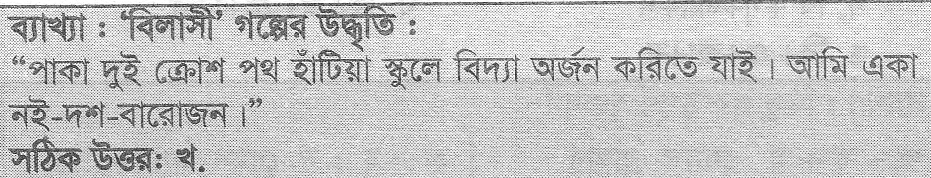 ব্যাখ্যা : ‘বিলাসী’ গল্পের উদ্ধৃতি :
“পাকা দুই ক্রোশ পথ হাঁটিয়া স্কুলে বিদ্যা অর্জন করিতে যাই। আমি একা
নই-দশ-বারোজন।”
সঠিক উত্তর: খ.